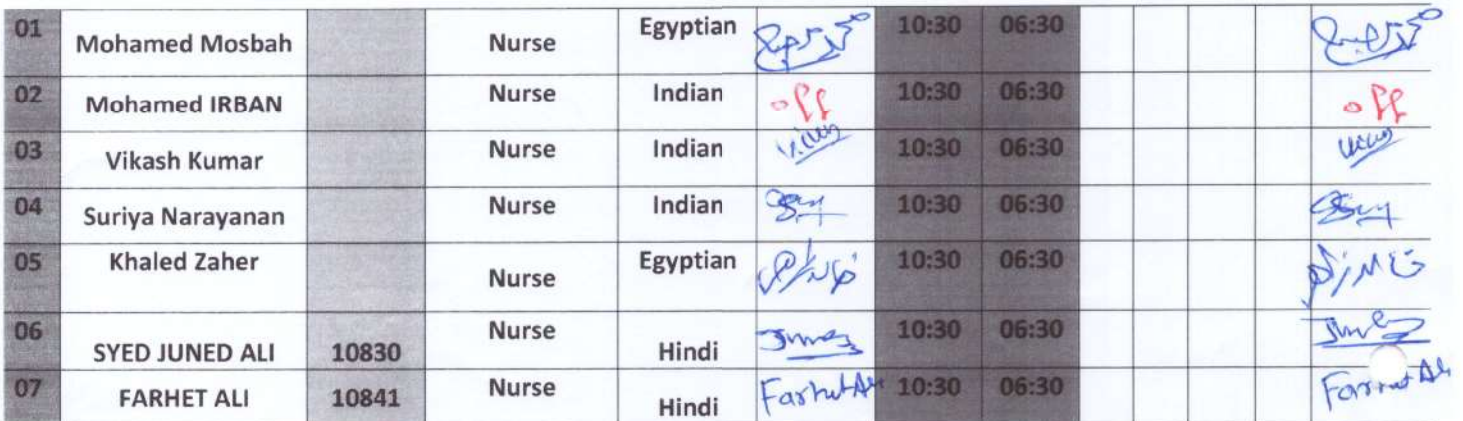 01 Mohamed Mosbah Nurse Egyptian 10:30 06:30
02 Mohamed IRBAN Nurse Indian off 10:30 06:30 off
03 Vikash Kumar Nurse Indian 10:30 06:30
04 Suriya Narayanan Nurse Indian 10:30 06:30
05 Khaled Zaher Nurse Egyptian 10:30 06:30
06 SYED JUNED ALI 10830 Nurse Hindi 10:30 06:30
07 FARHET ALI 10841 Nurse Hindi Farhet Ali 10:30 06:30 Farhet Ali